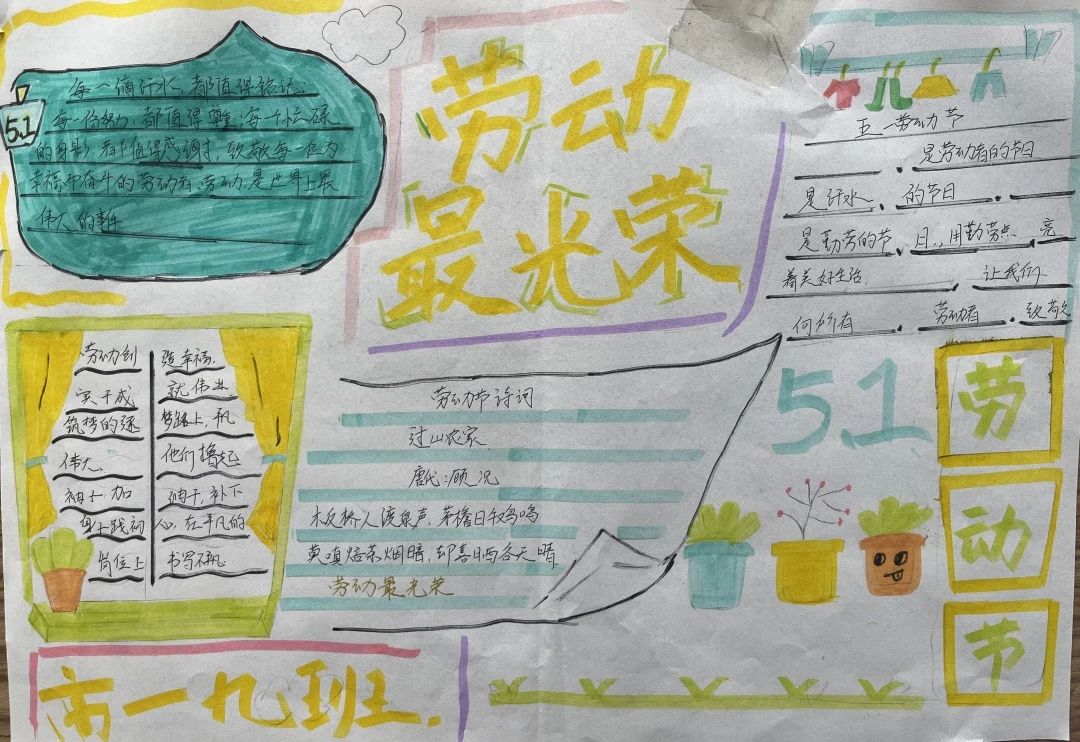 每一滴汗水,都值得铭记;
5.1
每一份努力,都值得尊重;每个忙碌
的身影,都值得感谢,致敬每一位为
幸福而奋斗的劳动者,劳动,是世界上最
伟大的事
劳动
最光荣
五一劳动节
是劳动者的节日
是汗水、的节日、
是勤劳的节、日.,用勤劳点、亮
着美好生活、让我们、
何所有、劳动者.致敬
劳动创造幸福.
实干成就伟业.
筑梦的逐梦路上,平
伟大.他们撸起
袖子加油干,补下
身上践初心,在平凡的
岗位上书写不凡
劳动节诗词
过山农家
唐代:顾况
木反桥人渡泉声,茅檐日午鸡鸣
莫嗔焙茶烟暗,却喜晒谷天晴
劳动最光荣
5.1
劳
动
节
市一九班.